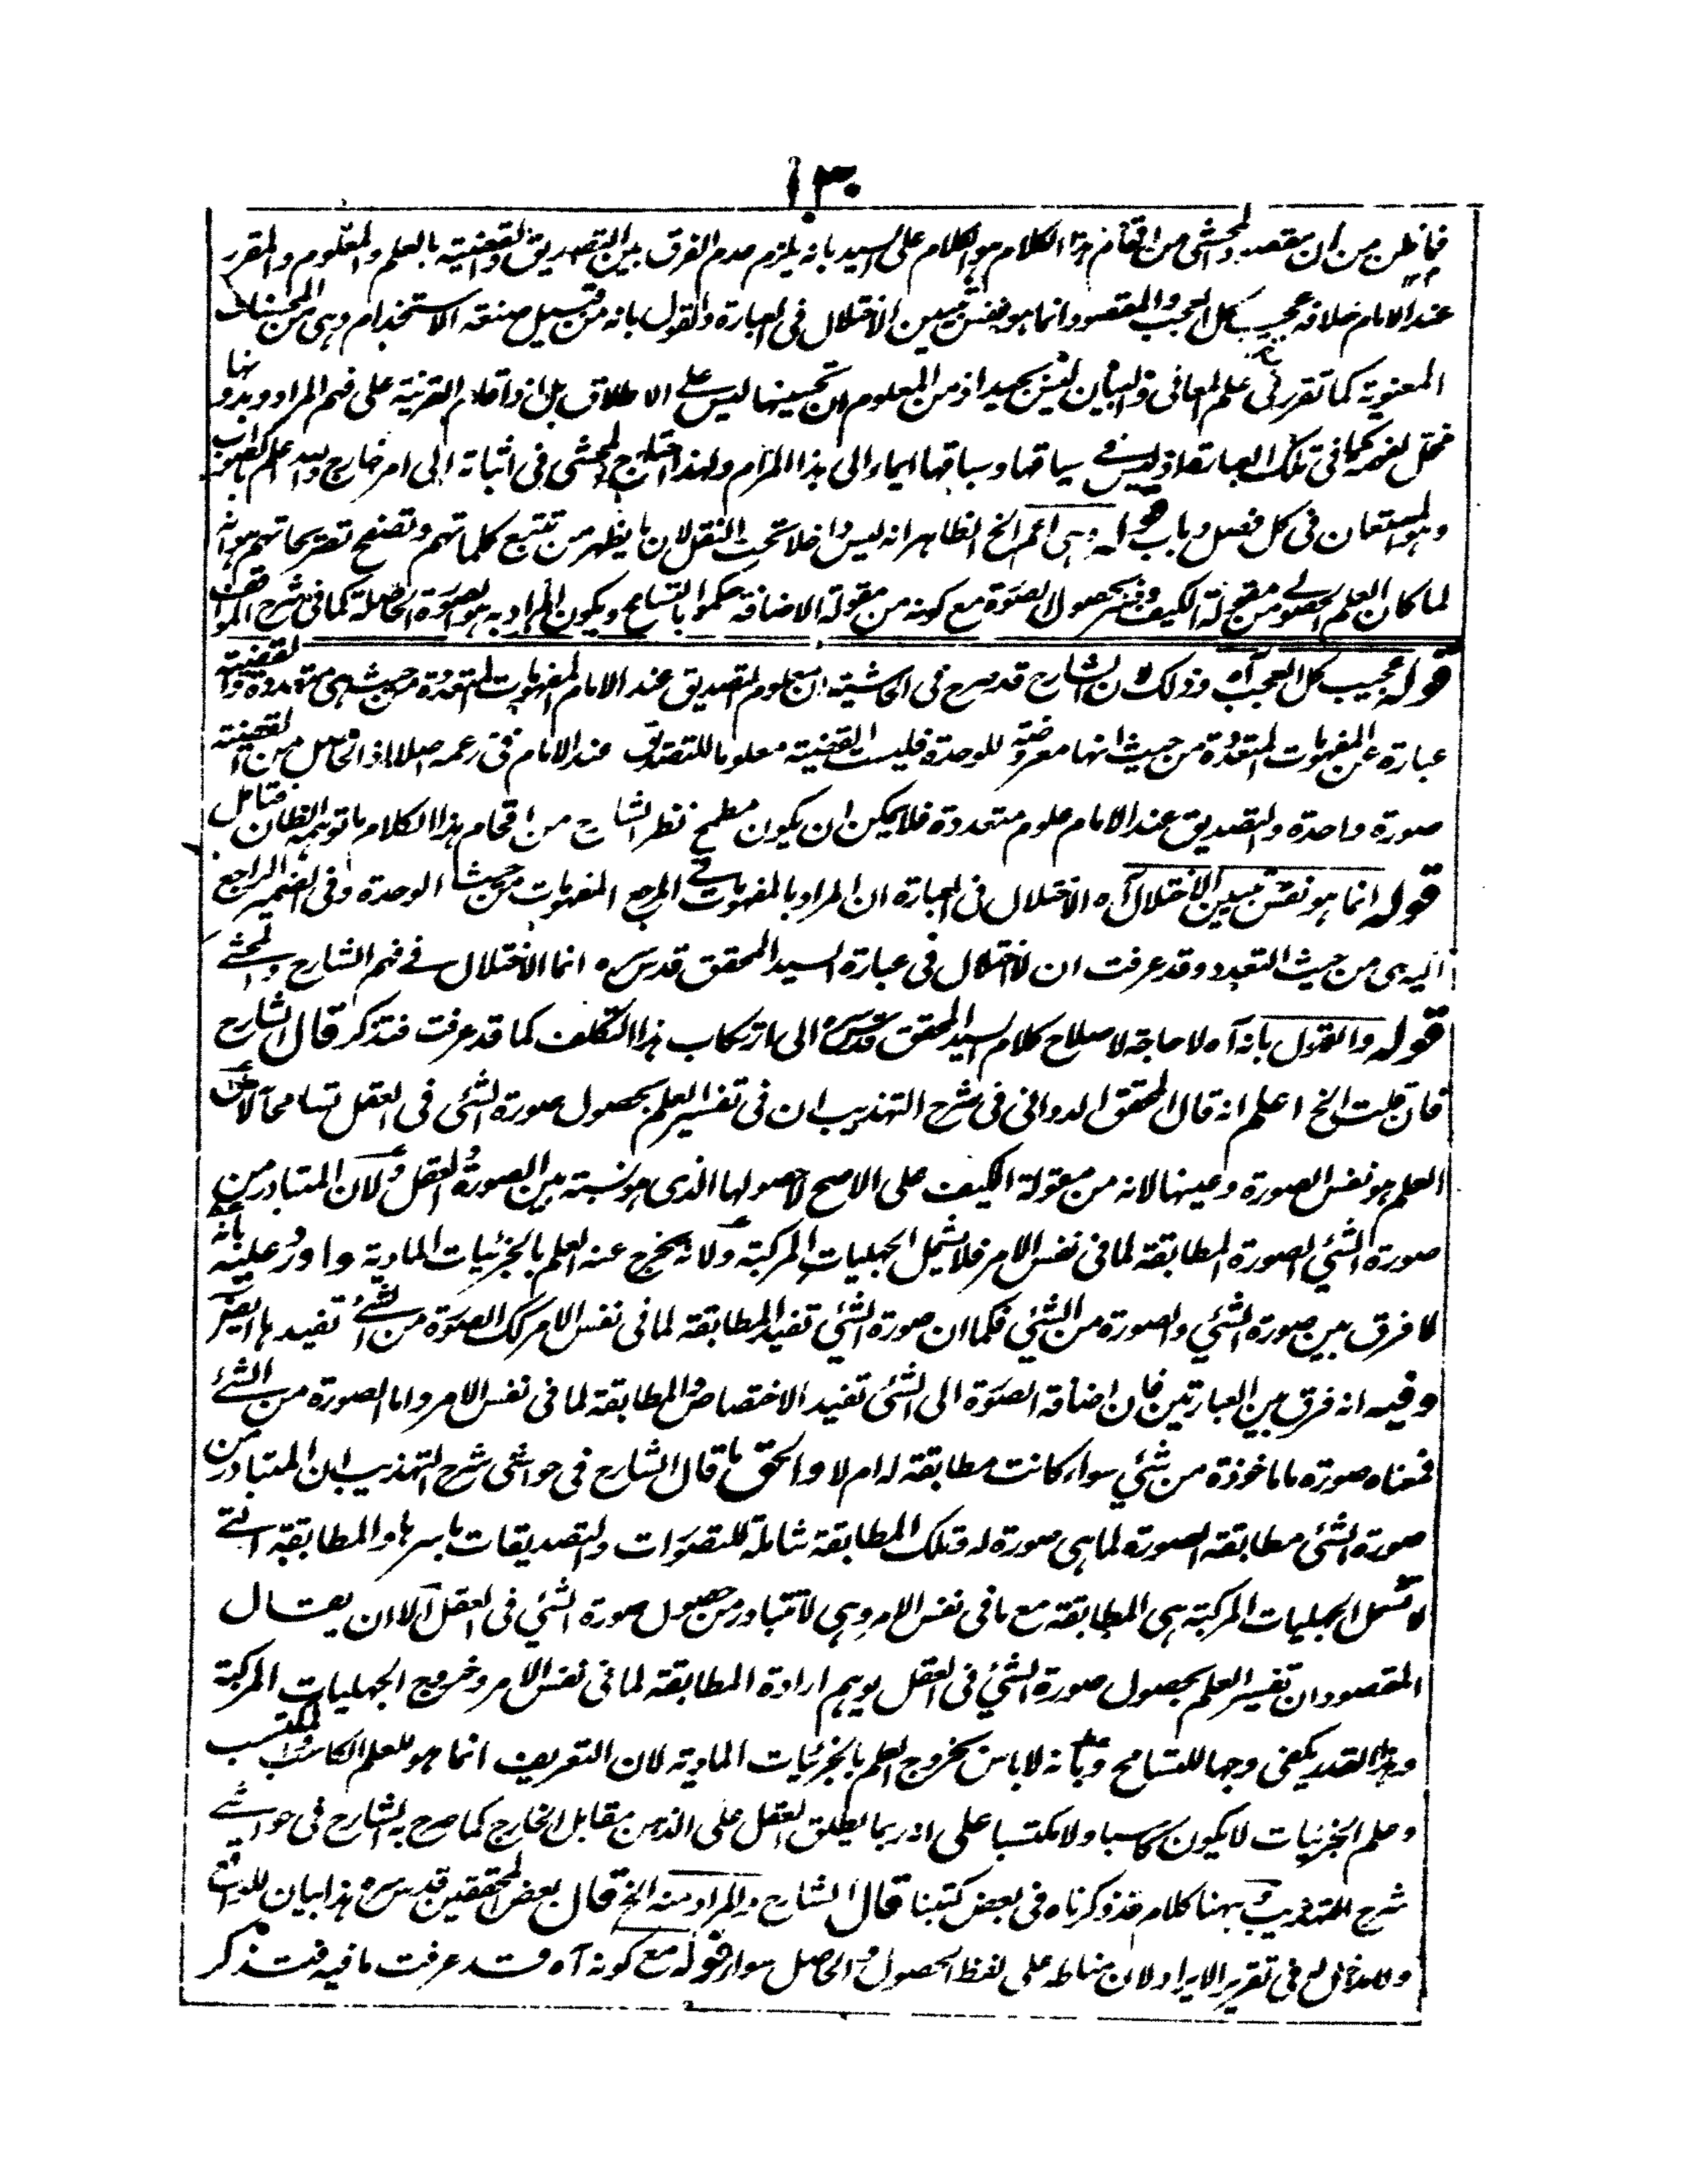 ١٣٠
فما يظن من ان مقصد المحشى من اقحام هذا الكلام هو الكلام على السيد بانه يلزم عدم الفرق بين التصديق والقضية بالعلم والمعلوم والمقرر
عند الامام خلافه عجيب كل العجب والمقصود انما هو نفس تبيين الاختلال فى العبارة والقول بانه من قبيل صنعة الاستخدام وهى من المحسنات
المعنوية كما تقرر فى علم المعانى والبيان ليس بجيد اذ من المعلوم ان تحسينها ليس على الاطلاق بل اذا قام القرينة على فهم المراد وبدونها
مخل لفهمه كما فى تلك العبارة اذ ليس فى سياقها وسباقها ايماء الى هذا المرام ولهذا احتاج المحشى فى اثباته الى امر خارج والله اعلم بالصواب
وهو المستعان فى كل فصل وباب قوله وهى اعم الخ الظاهر انه ليس داخلا تحت النقل لان ما يظهر من تتبع كلماتهم وتصفح تصريحاتهم هو انه
لما كان العلم الحصولى من مقولة الكيف وفسر بحصول الصورة مع كونه من مقولة الاضافة حكموا بالتسامح ويكون المراد به هو الصورة الحاصلة كما فى شرح المواقف
قوله عجيب كل العجب آه وذلك لان الشارح قد صرح فى الحاشية ان معلوم التصديق عند الامام المفهومات المتعددة من حيث هى متعددة والقضية
عبارة عن المفهومات المتعددة من حيث انها معروضة للوحدة فليست القضية معلوما للتصديق عند الامام فى زعمه اصلا اذ الحاصل من القضية
صورة واحدة والتصديق عند الامام علوم متعددة فلا يمكن ان يكون مطمح نظر الشارح من اقحام هذا الكلام ما توهمه الظان فتامل
قوله انما هو نفس تبيين الاختلال آه الاختلال فى العبارة ان المراد بالمفهومات فى المرجع المفهومات من حيث الوحدة وفى الضمير الراجع
اليه هى من حيث التعدد وقد عرفت ان لا اختلال فى عبارة السيد المحقق قدس سره انما الاختلال فى فهم الشارح والمحشى
قوله والقول بانه آه لا حاجة لاصلاح كلام السيد المحقق قدس سره الى ارتكاب هذا التكلف كما قد عرفت فتذكر قال الشارح
فان قلت الخ اعلم انه قال المحقق الدوانى فى شرح التهذيب ان فى تفسير العلم بحصول صورة الشئ فى العقل تسامحا لان
العلم هو نفس الصورة وعينها لانه من مقولة الكيف على الاصح لا حصولها الذى هو نسبة بين الصورة والعقل ولان المتبادر من
صورة الشئ الصورة المطابقة لما فى نفس الامر فلا يشمل الجهليات المركبة ولانه يخرج عنه العلم بالجزئيات المادية واورد عليه بانه
لا فرق بين صورة الشئ والصورة من الشئ فكما ان صورة الشئ تفيد المطابقة لما فى نفس الامر كك الصورة من الشئ تفيدها ايضا
وفيه انه فرق بين العبارتين فان اضافة الصورة الى الشئ تفيد الاختصاص والمطابقة لما فى نفس الامر واما الصورة من الشئ
فمعناه صورة ما ماخوذة من شئ سواء كانت مطابقة له ام لا والحق ما قال الشارح فى حواشى شرح التهذيب ان المتبادر من
صورة الشئ مطابقة الصورة لما هى صورة له وتلك المطابقة شاملة للتصورات والتصديقات باسرها والمطابقة التى
لا تشمل الجهليات المركبة هى المطابقة مع ما فى نفس الامر وهى لا تتبادر من حصول صورة الشئ فى العقل الا ان يقال
المقصود ان تفسير العلم بحصول صورة الشئ فى العقل يوهم ارادة المطابقة لما فى نفس الامر وخروج الجهليات المركبة
وهذا القدر يكفى وجها للتسامح وبانه لا باس بخروج العلم بالجزئيات المادية لان التعريف انما هو للعلم الكاسب والمكتسب
وعلم الجزئيات لا يكون كاسبا ولا مكتسبا على انه ربما يطلق العقل على الذهن مقابل الخارج كما صرح به الشارح فى حواشى
شرح التهذيب وههنا كلام قد ذكرناه فى بعض كتبنا قال الشارح والمراد منه الخ قال بعض المحققين قدس سره هذا بيان للواقع
ولا مدخل له فى تقرير الايراد لان مناطه على لفظ الحصول والحاصل سواء قوله مع كونه آه قد عرفت ما فيه فتذكر